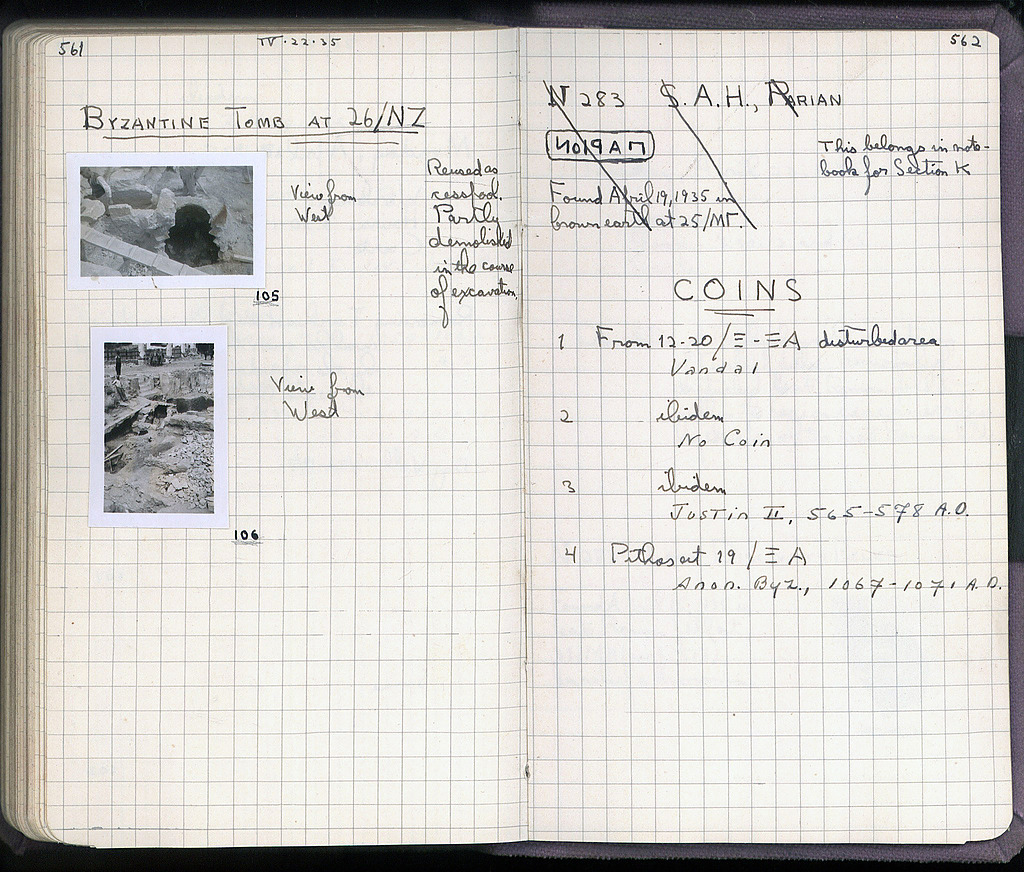 561
IV·22·35
BYZANTINE TOMB AT 26/NZ
View from
West
Reused as
cesspool.
Partly
demolished
in the course
of excavation.
105
View from
West
106
562
N 283 S.A.H., PARIAN
This belongs in note-
book for Section K
Found April 19, 1935 in
brown earth at 25/ΜΓ.
COINS
1 From 12-20/Ξ-ΞΑ disturbed area
Vandal
2 ibidem
No Coin
3 ibidem
Justin II, 565-578 A.D.
4 Pithos at 19/ΞΑ
Anon. Byz., 1067-1071 A.D.